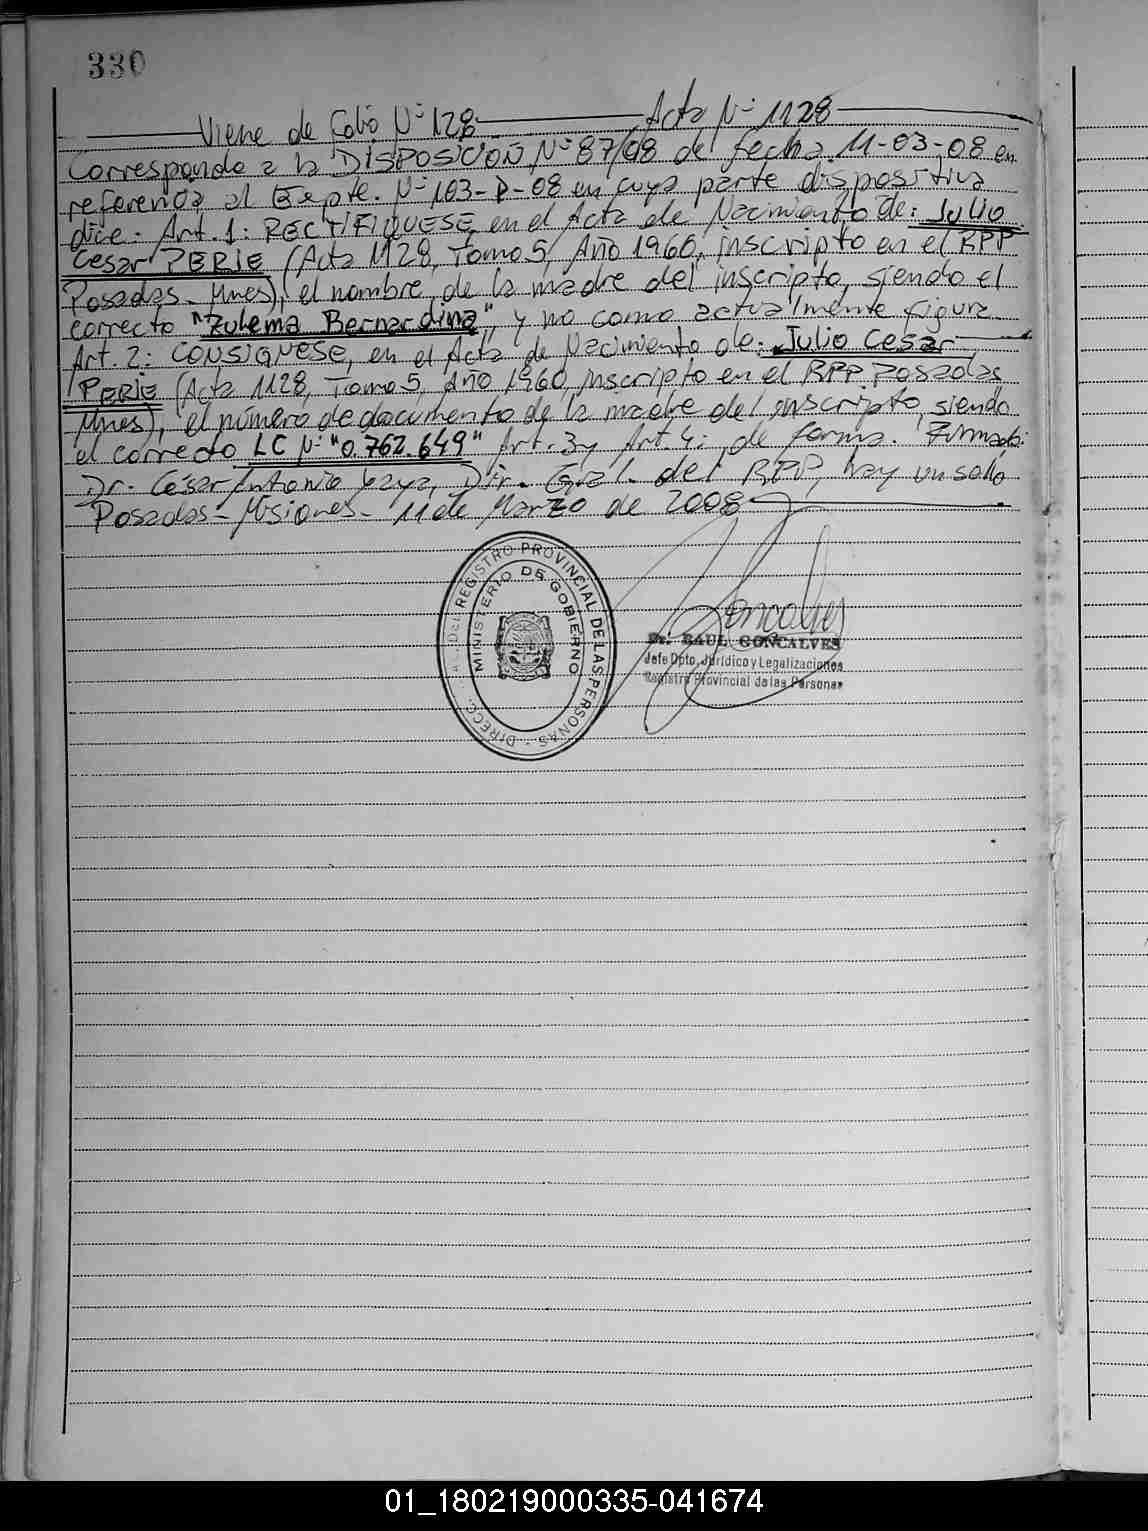 330
Viene de Folio N° 128 Acta N° 1128
Corresponde a la DISPOSICION N° 87/08 de fecha 11-03-08 en
referencia al Expte. N° 103-P-08 en cuya parte dispositiva
dice: Art. 1: RECTIFIQUESE en el Acta de Nacimiento de: Julio
Cesar PERIE (Acta 1128, Tomo 5, Año 1960, inscripto en el RPP
Posadas - Mnes), el nombre de la madre del inscripto, siendo el
correcto "Zulema Bernardina", y no como actualmente figura.
Art. 2: CONSIGNESE, en el Acta de Nacimiento de: Julio Cesar
PERIE (Acta 1128, Tomo 5, Año 1960, inscripto en el RPP Posadas
Mnes), el número de documento de la madre del inscripto, siendo
el correcto LC N° "0.762.649" Art. 3 y Art. 4: de forma. Firmado:
Dr. César Antonio, Dir. Gral. del RPP, hay un sello
Posadas - Misiones - 11 de Marzo de 2008
DIRECC. DEL REGISTRO PROVINCIAL DE LAS PERSONAS
MINISTERIO DE GOBIERNO
Goncalves
Dr. RAUL GONCALVES
Jefe Dpto. Jurídico y Legalizaciones
Registro Provincial de las Personas
01_180219000335-041674